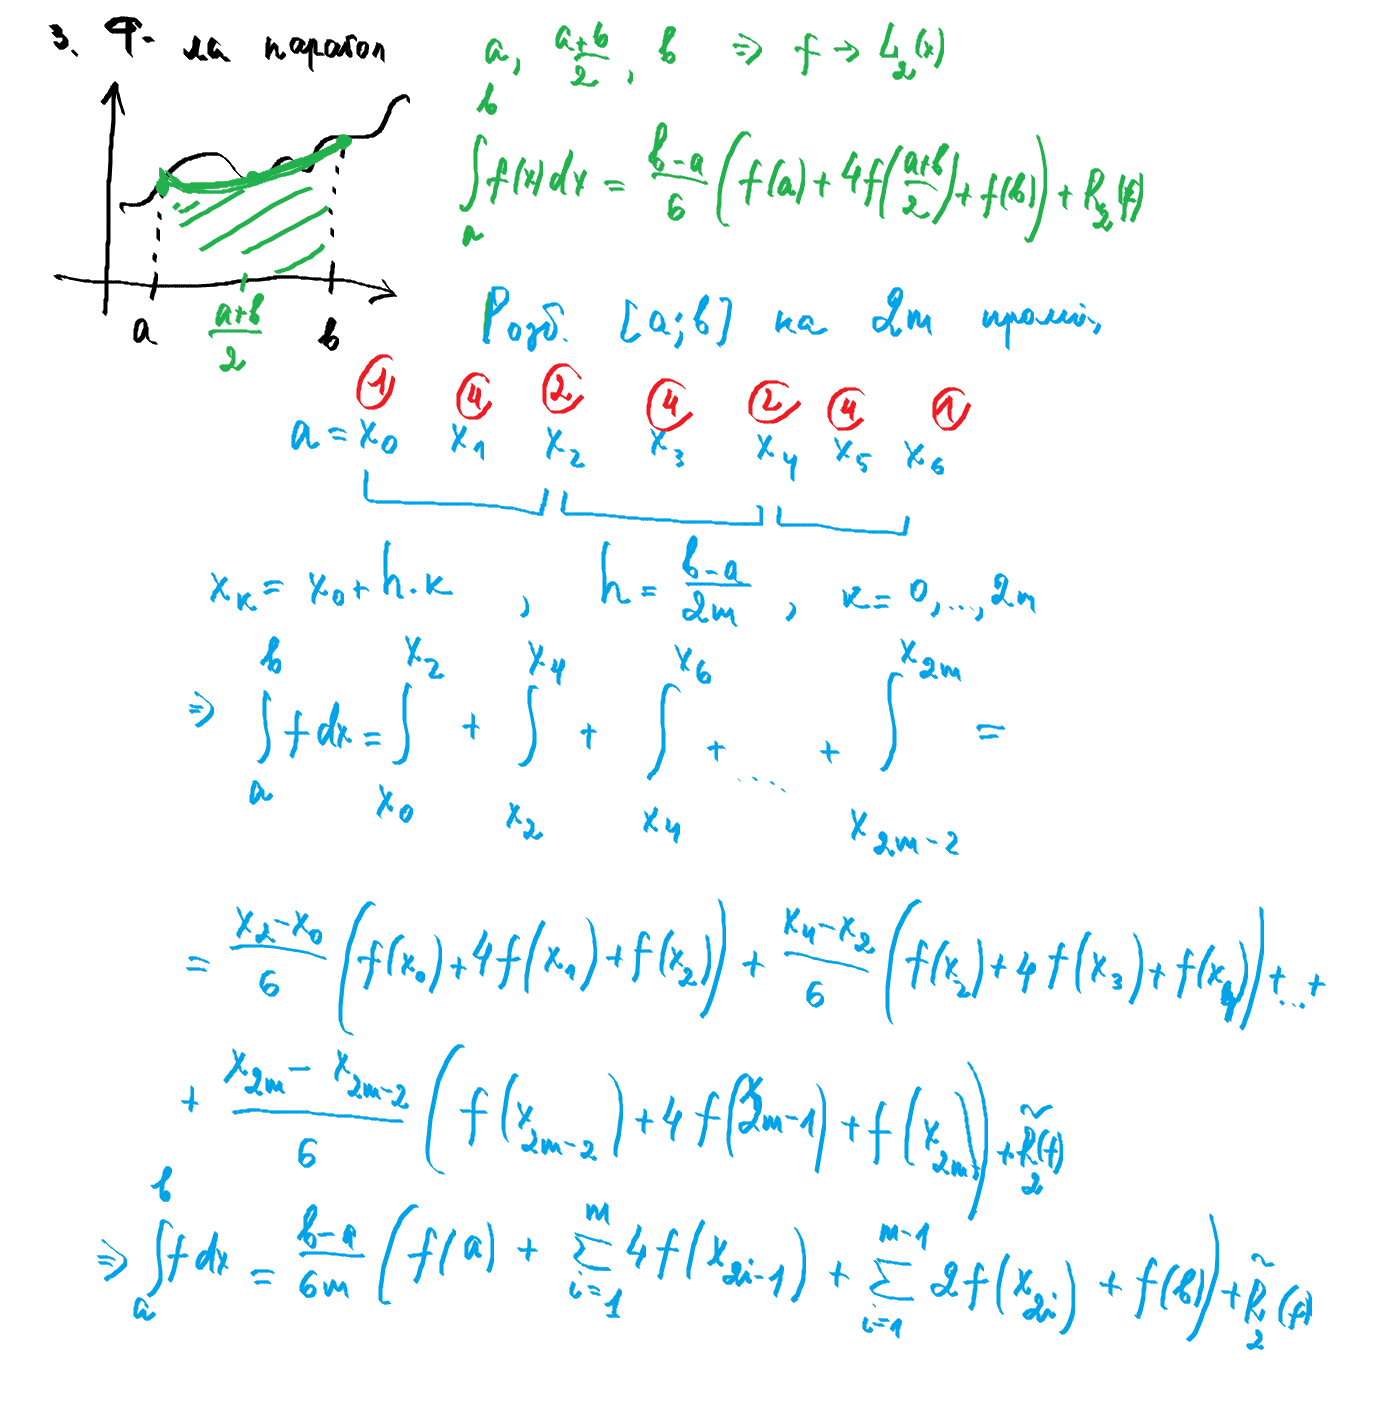 3. Ф-ла парабол
a, (a+b)/2, b ⇒ f → L₂(x)
∫ₐᵇ f(x)dx = (b-a)/6 (f(a) + 4f((a+b)/2) + f(b)) + R₂(f)
a (a+b)/2 b
Розб. [a;b] на 2m проміж,
① ④ ② ④ ② ④ ①
a = x₀ x₁ x₂ x₃ x₄ x₅ x₆
xₖ = x₀ + h·k , h = (b-a)/(2m) , k = 0,...,2m
⇒ ∫ₐᵇ f dx = ∫_{x₀}^{x₂} + ∫_{x₂}^{x₄} + ∫_{x₄}^{x₆} + .... + ∫_{x_{2m-2}}^{x_{2m}} =
= (x₂-x₀)/6 (f(x₀) + 4f(x₁) + f(x₂)) + (x₄-x₂)/6 (f(x₂) + 4f(x₃) + f(x₄)) + ... +
+ (x_{2m} - x_{2m-2})/6 (f(x_{2m-2}) + 4f(x_{2m-1}) + f(x_{2m})) + R̃₂(f)
⇒ ∫ₐᵇ f dx = (b-a)/(6m) (f(a) + ∑_{i=1}^{m} 4f(x_{2i-1}) + ∑_{i=1}^{m-1} 2f(x_{2i}) + f(b)) + R̃₂(f)